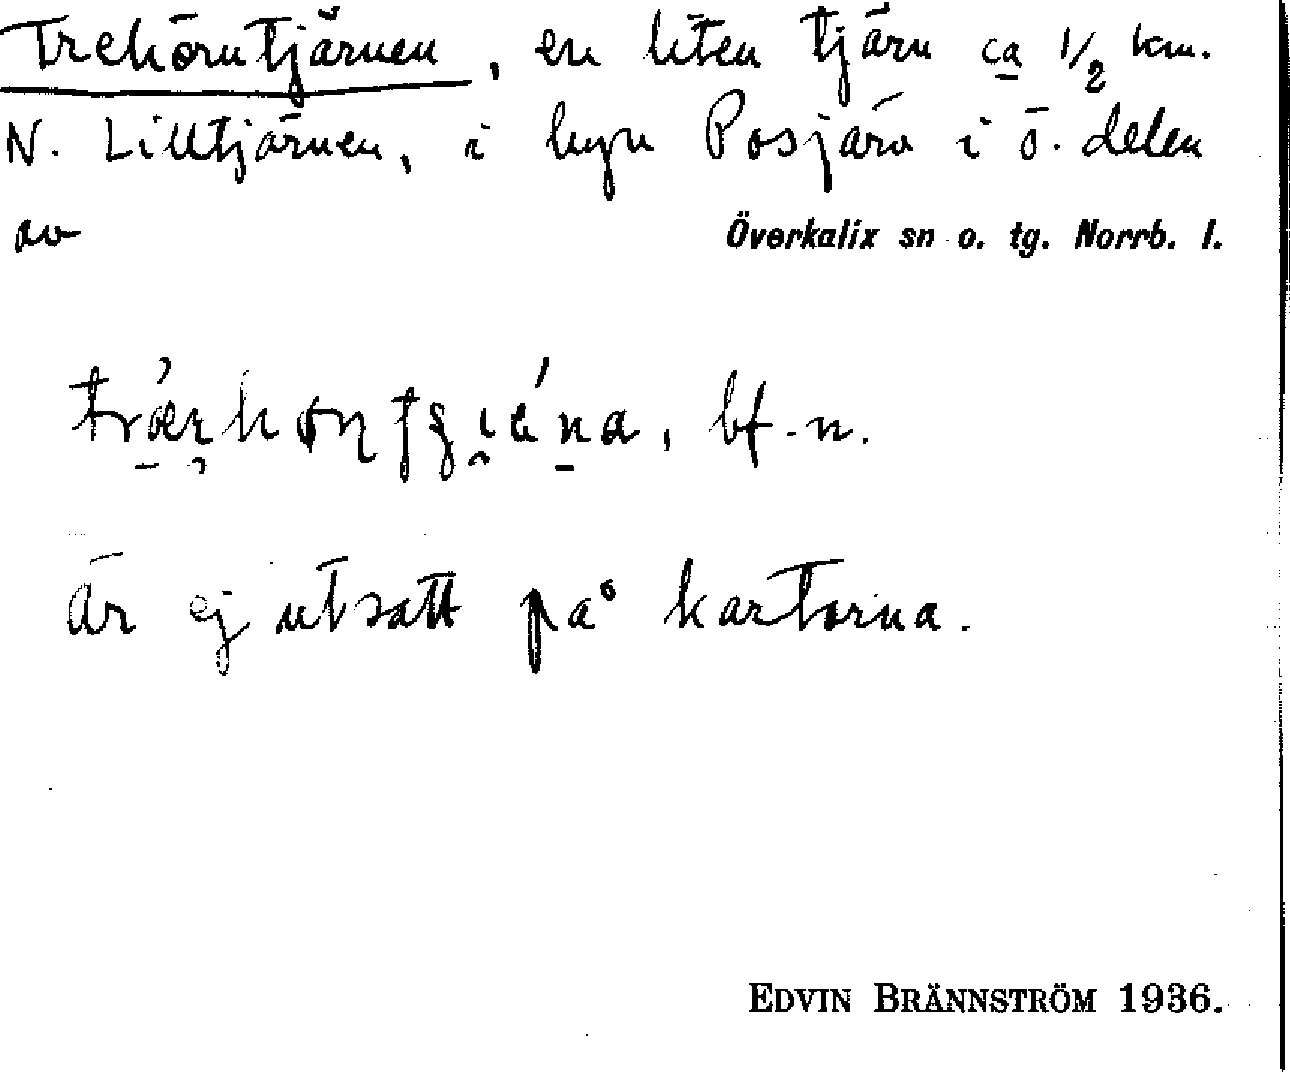 Trehörntjärnen, en liten tjärn ca 1/2 km.
N. Lilltjärnen, i byn Posjärv i ö. delen
av Överkalix sn o. tg. Norrb. l.
bf. n.
är ej utsatt på kartorna.
EDVIN BRÄNNSTRÖM 1936.